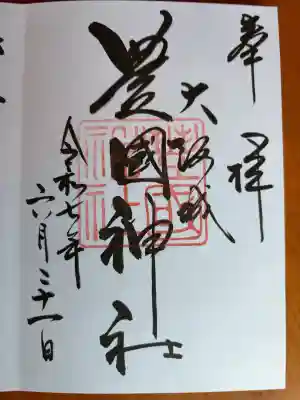 奉拝
大阪城
豊國神社
令和七年
六月二十一日